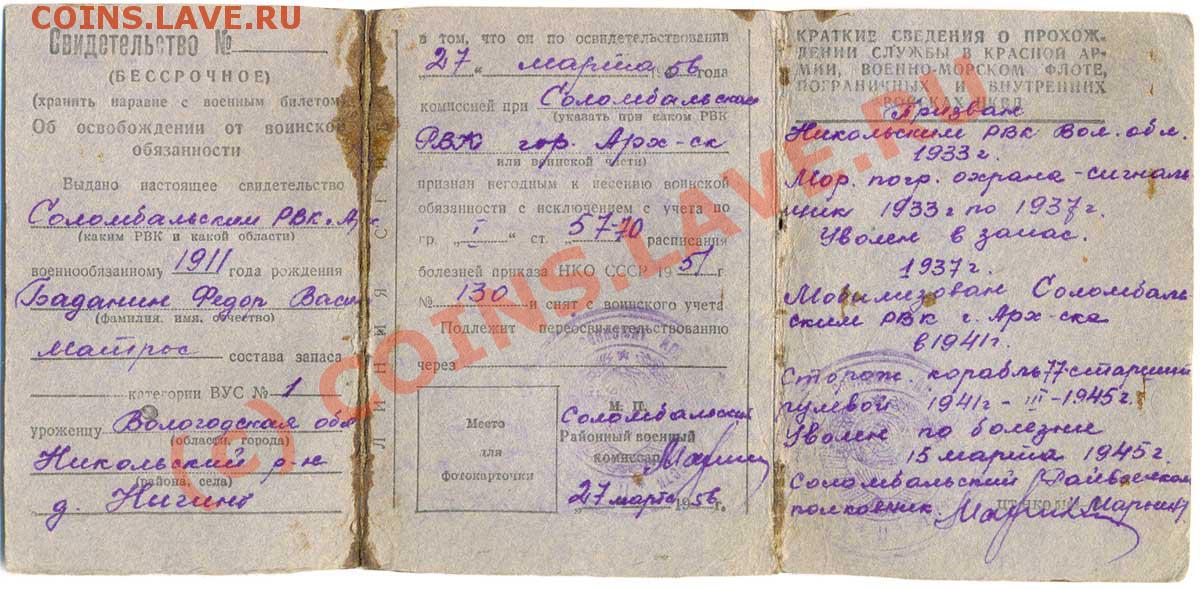 COINS.LAVE.RU
Свидетельство №
(БЕССРОЧНОЕ)
(хранить наравне с военным билетом)
Об освобождении от воинской
обязанности
Выдано настоящее свидетельство
Соломбальским РВК г. Арх
(каким РВК и какой области)
военнообязанному 1911 года рождения
Баданин Федор Васи
(фамилия, имя, отчество)
матрос состава запаса
категории ВУС № 1
уроженцу Вологодская обл
(области, города)
Никольский р-н
(района, села)
д. Нигино
ЛИНИЯ
в том, что он по освидетельствовании
27 " марта 1956 года
комиссией при Соломбальском
(указать при каком РВК
РВК гор. Арх-ск
или воинской части)
признан негодным к несению воинской
обязанности с исключением с учета по
гр. „ I " ст. „ 57-70 расписания
болезней приказа НКО СССР 1951 г.
№ 130 и снят с воинского учета
Подлежит переосвидетельствованию
через
Место
для
фотокарточки
М. П.
Соломбальский
Районный военный
комиссар
27 марта 1956 г.
КРАТКИЕ СВЕДЕНИЯ О ПРОХОЖ-
ДЕНИИ СЛУЖБЫ В КРАСНОЙ АР-
МИИ, ВОЕННО-МОРСКОМ ФЛОТЕ,
ПОГРАНИЧНЫХ И ВНУТРЕННИХ
ВОЙСКАХ НКВД
Призван
Никольским РВК Вол. обл.
1933 г.
Мор. погр. охрана - сигналь-
щик 1933 г по 1937 г.
Уволен в запас.
1937 г.
Мобилизован Соломбаль-
ским РВК г. Арх-ска
в 1941 г.
Сторож. корабль 77 старший
рулевой 1941 г - III - 1945 г.
Уволен по болезни
15 марта 1945 г.
Соломбальский Райвоенком
полковник
(c) COINS.LAVE.RU